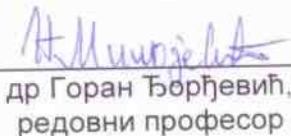 др Горан Ђорђевић,
редовни професор